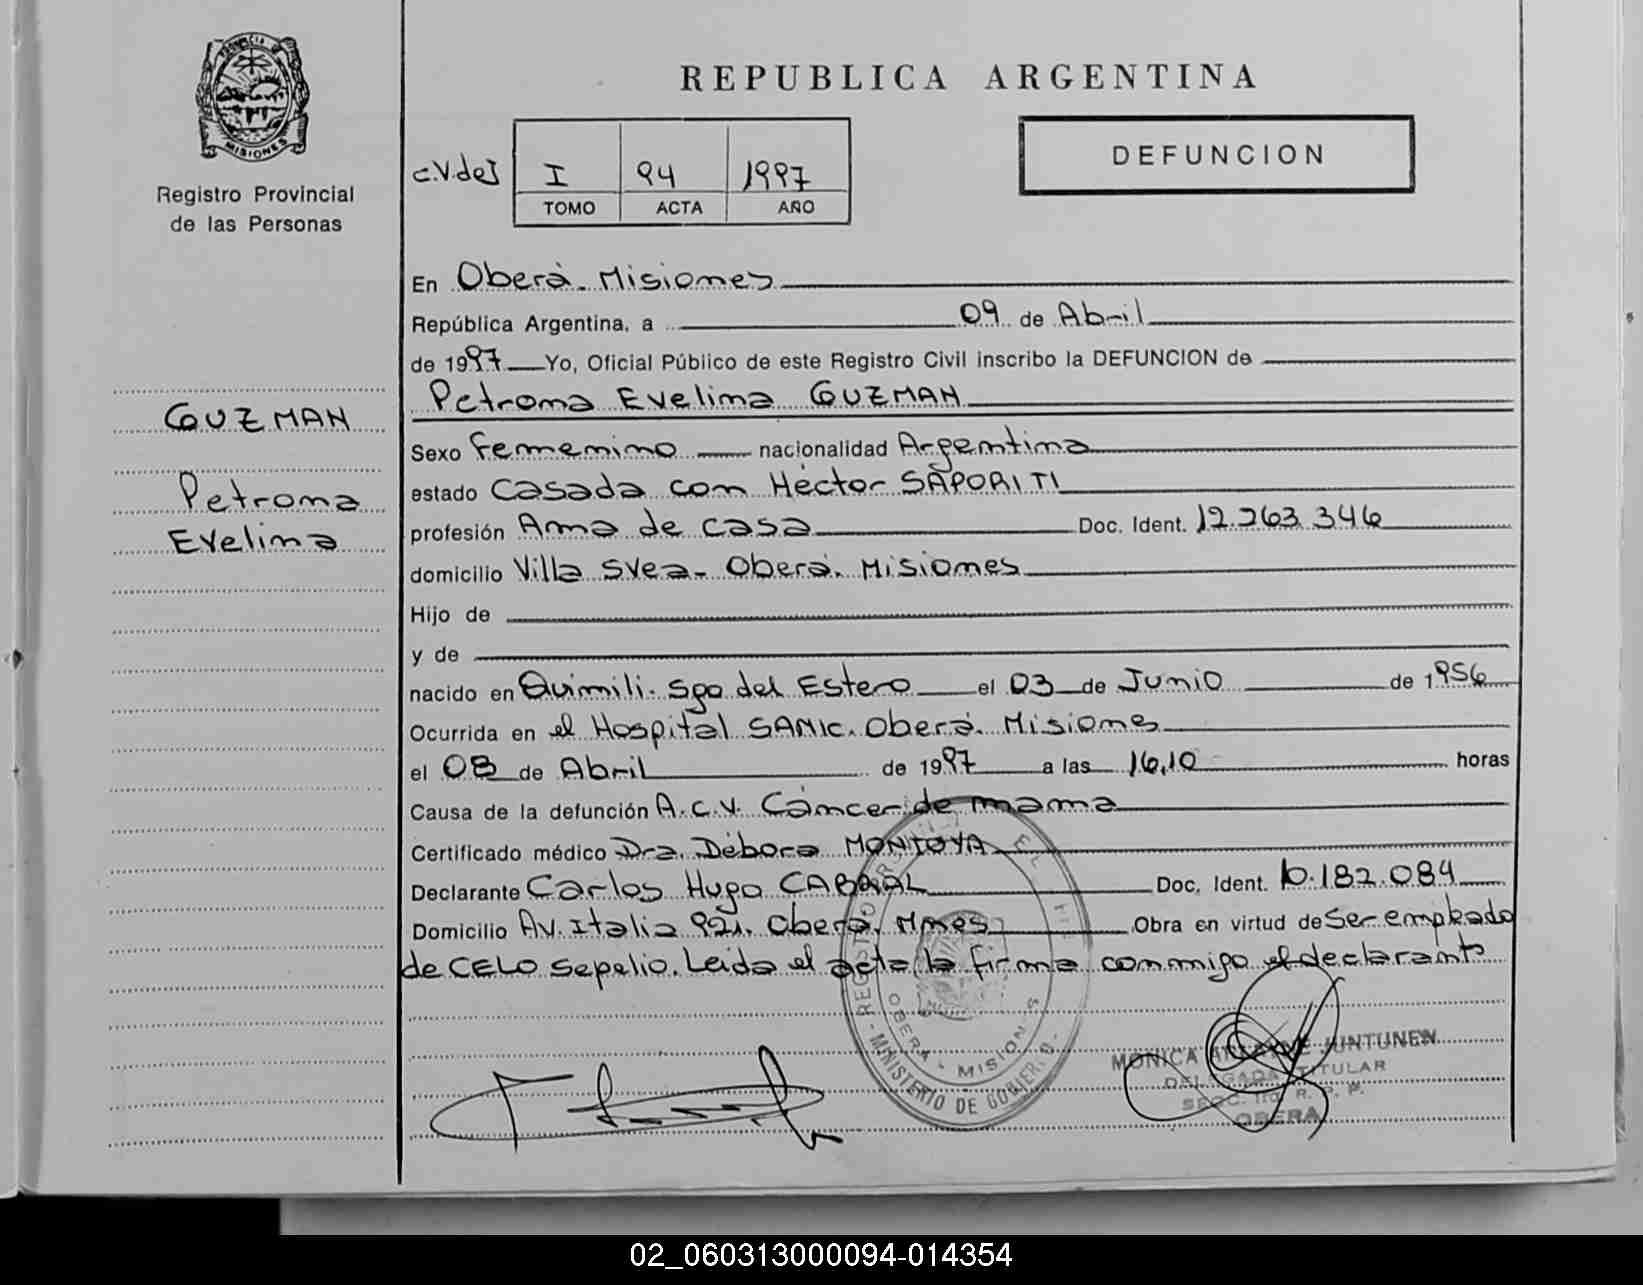 PROVINCIA DE
MISIONES
Registro Provincial
de las Personas
GUZMAN
Petrona
Evelina
REPUBLICA ARGENTINA
DEFUNCION
C.V.deI
I 94 1997
TOMO ACTA AÑO
En Oberá. Misiones
República Argentina, a 09 de Abril
de 1997 Yo, Oficial Público de este Registro Civil inscribo la DEFUNCION de
Petrona Evelina GUZMAN
Sexo Femenino nacionalidad Argentina
estado Casada con Héctor SAPORITI
profesión Ama de casa Doc. Ident. 12.263.346
domicilio Villa Svea- Oberá. Misiones
Hijo de
y de
nacido en Quimili. Sgo del Estero el 03 de Junio de 1956
Ocurrida en el Hospital SAMIC. Oberá. Misiones
el 08 de Abril de 1997 a las 16,10 horas
Causa de la defunción A.C.V. Cáncer de mama
Certificado médico Dra. Débora MONTOYA
Declarante Carlos Hugo CABRAL Doc. Ident. 10.182.084
Domicilio Av. Italia 921. Oberá. Mnes Obra en virtud de Ser empleado
de CELO Sepelio. Leida el acta la firma conmigo el declarante
REGISTRO
OBERA - MISIONES
- MINISTERIO DE GOBIERNO -
MONICA JUNTUNEN
DELEGADA TITULAR
SECC. R. P. P.
OBERA
02_060313000094-014354